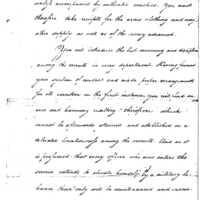 unless accompanied by authentic vouchers. You must
therefore take receipts for the arms clothing and every
other supply as well as of the money advanced.
You will introduce the best economy and discipline
among the recruits in your department. Having formed
your system of conduct and made proper arrangements
for its execution in the first instance, you will find an
ease and harmony resulting therefrom which
cannot be afterwards attained and established on a
tolerated licentiousness among the recruits. And as it
is presumed that every officer who now enters the
service intends to elevate himself by a military be-
haviour there only will be countenanced and